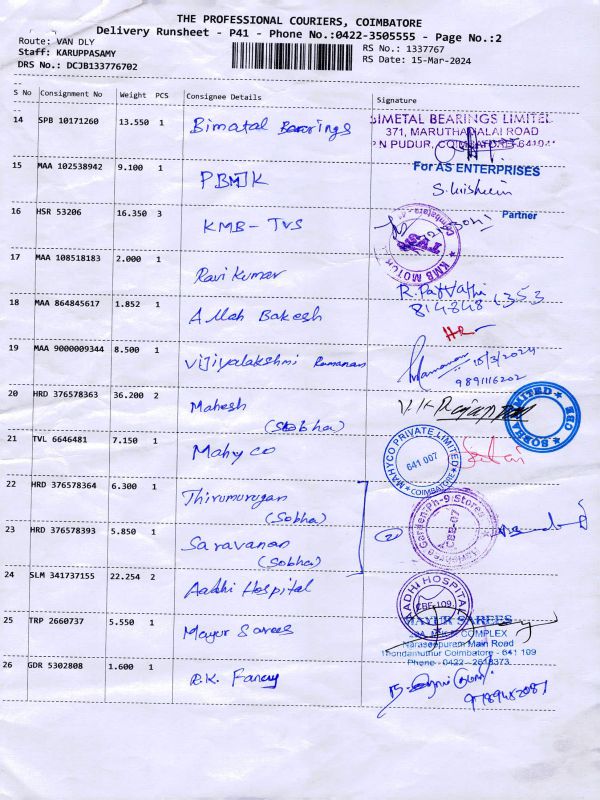 THE PROFESSIONAL COURIERS, COIMBATORE
Delivery Runsheet - P41 - Phone No.:0422-3505555 - Page No.:2
Route: VAN DLY
Staff: KARUPPASAMY
DRS No.: DCJB133776702
RS No.: 1337767
RS Date: 15-Mar-2024
S No Consignment No Weight PCS Consignee Details Signature
14 SPB 10171260 13.550 1 Bimatal Bearings
BIMETAL BEARINGS LIMITED
371, MARUTHAMALAI ROAD
P N PUDUR, COIMBATORE-641041
15 MAA 102538942 9.100 1
For AS ENTERPRISES
Partner
16 HSR 53206 16.350 3 KMB - TVS
KMB MOTOR
TVS
17 MAA 108518183 2.000 1 Ravi Kumar
18 MAA 864845617 1.852 1 Allah Bakesh
19 MAA 9000009344 8.500 1 Vijiyalakshmi Ramanan
15/3/2024
20 HRD 376578363 36.200 2 Mahesh
(Sobha)
SOBHA LIMITED
21 TVL 6646481 7.150 1 Mahyco
MAHYCO PRIVATE LIMITED
641 007
COIMBATORE
22 HRD 376578364 6.300 1 Thirumurugan
(Sobha)
Garden-Ph-9 Stores
CBE-07
23 HRD 376578393 5.850 1 Saravanan
(Sobha)
2
24 SLM 341737155 22.254 2 Aadhi Hospital
AADHI HOSPITAL
CBE-109
25 TRP 2660737 5.550 1 Mayur Sarees
MAYUR SAREES
COMPLEX
Naraseepuram Main Road
Thondamuthur Coimbatore - 641 109
Phone - 0422 - 2618373
26 GDR 5302808 1.600 1 R.K. Fancy